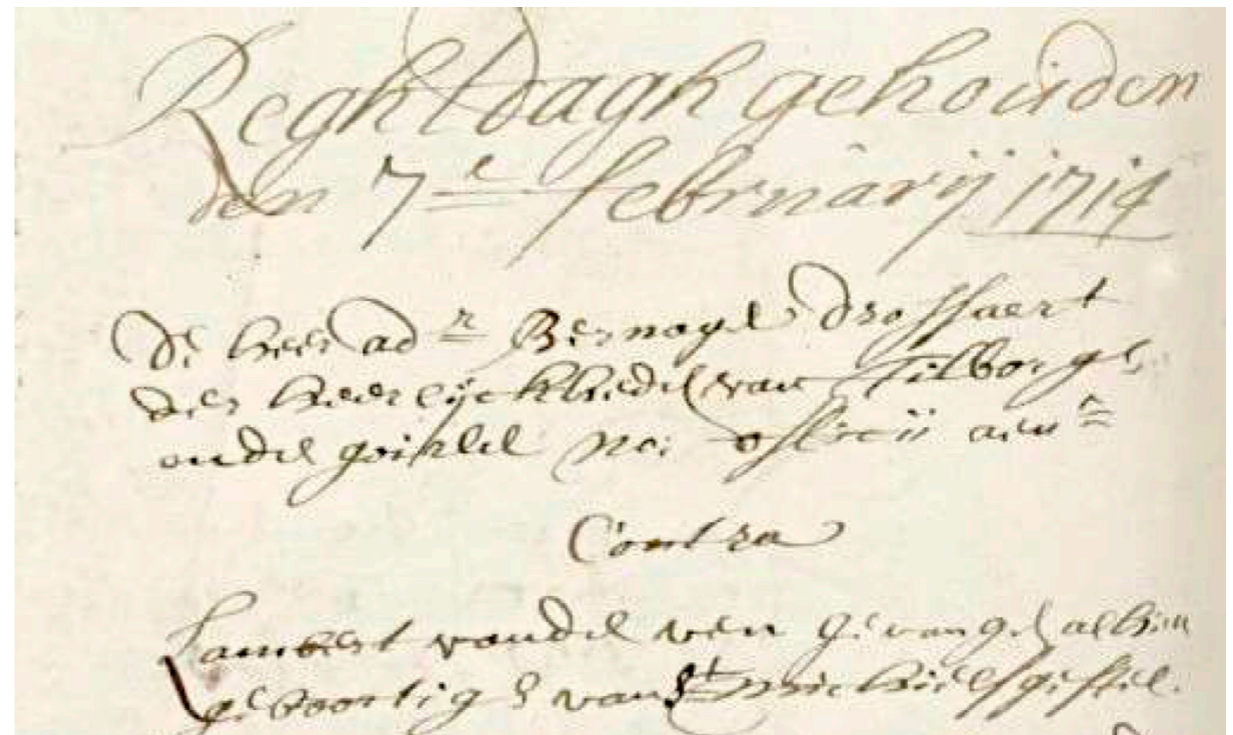 Reghtdagh gehouden
den 7e februarij 1714
De heer adr Bernagie Drossaert
der heerlijckheden van Tilborgh
ende goirle No: offitii aenr
Contra
Lambert vanden ven gevange alhier
geboortigh van St michielsgestel.